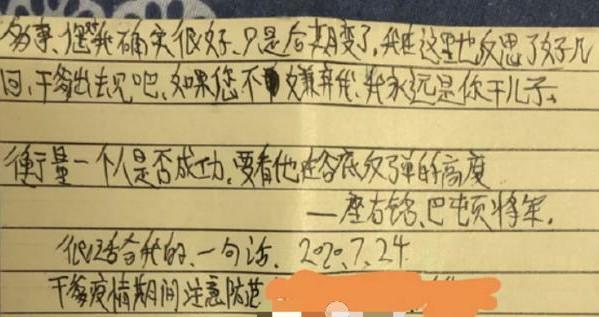 多事、但对我确实很好、只是后期变了,我在这里也反思了好几
回、干爹出去见吧、如果您不嫌弃我、我永远是你干儿子。
衡量一个人是否成功、要看他在谷底反弹的高度
——座右铭、巴顿将军。
很适合我的、一句话、2020.7.24
干爹疫情期间注意防范